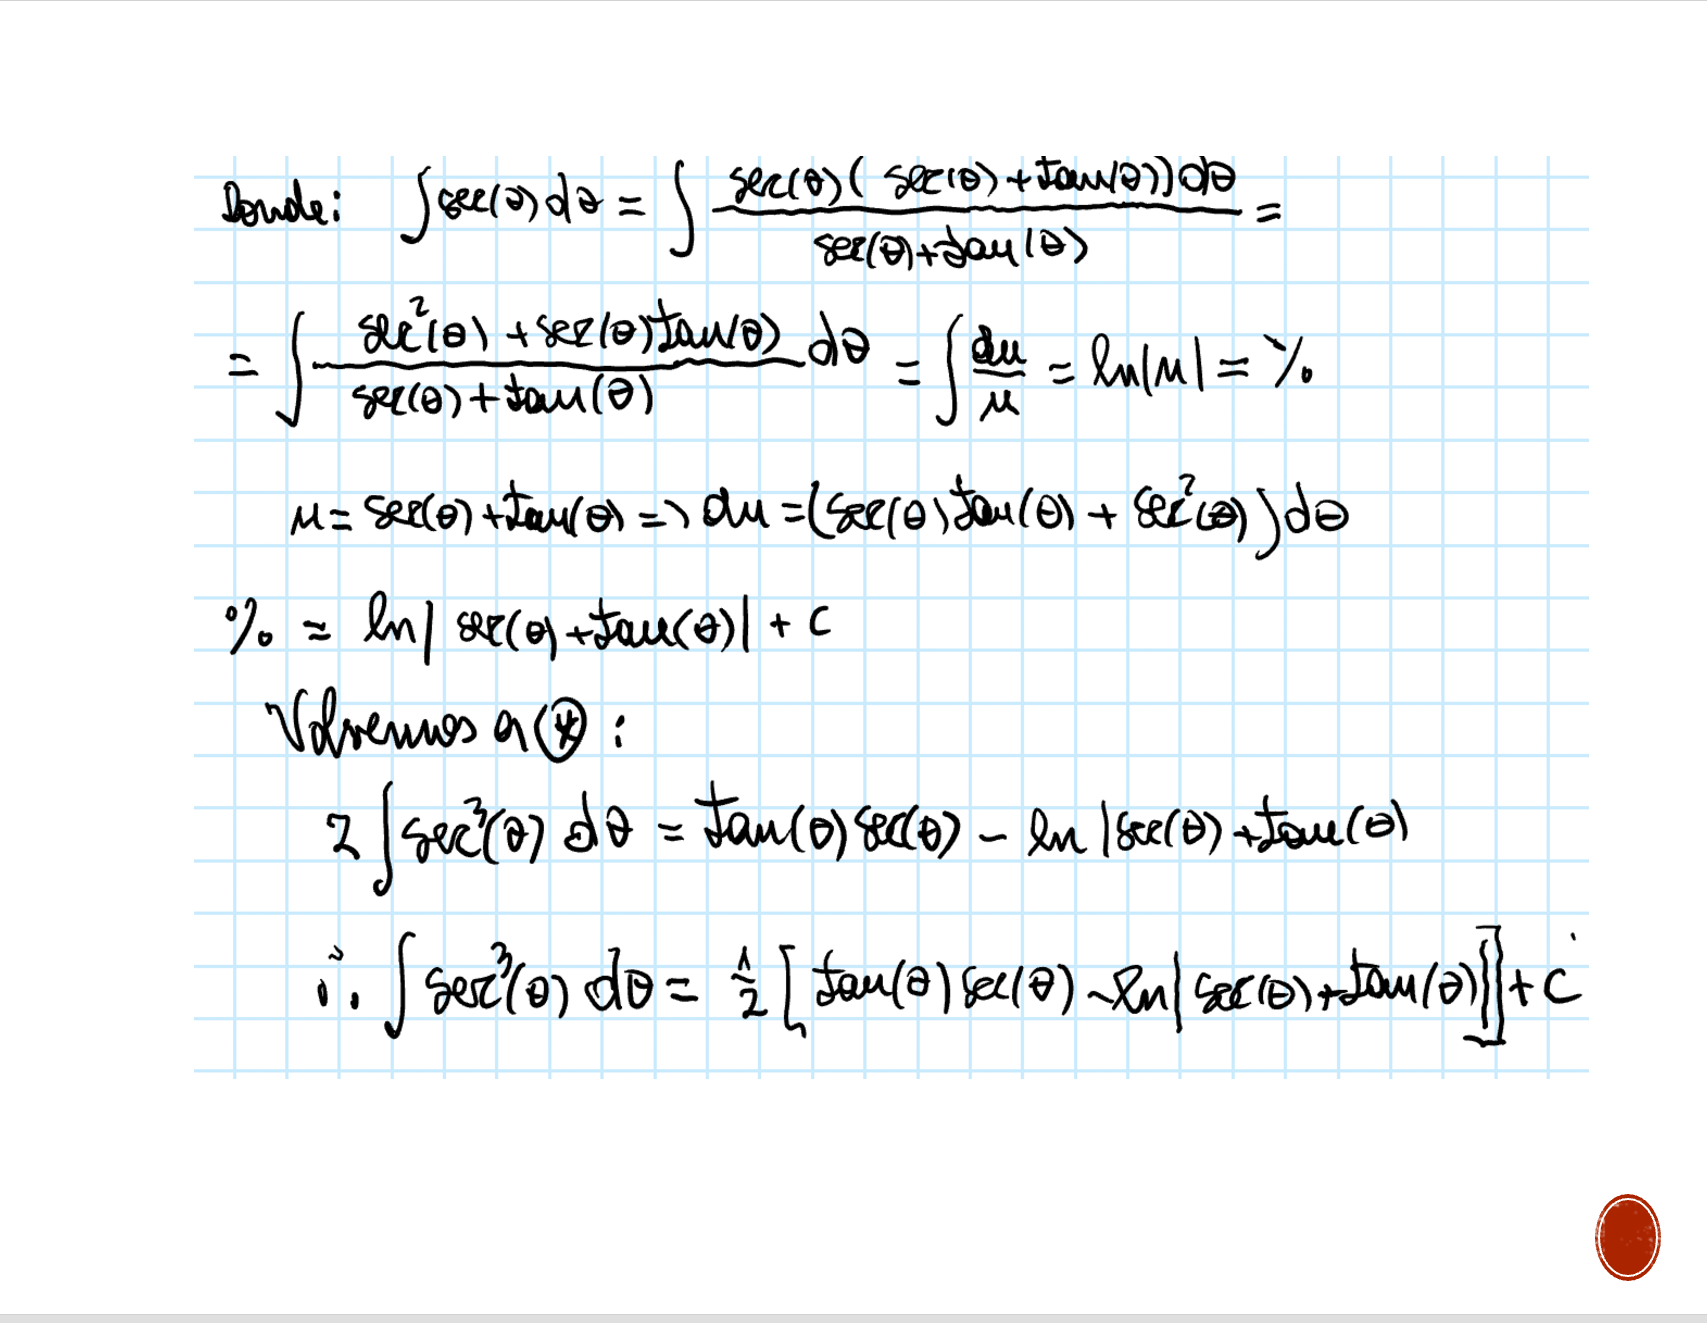 Donde: ∫ sec(θ) dθ = ∫ sec(θ)( sec(θ) + tan(θ)) dθ / sec(θ) + tan(θ) =
= ∫ sec²(θ) + sec(θ) tan(θ) / sec(θ) + tan(θ) dθ = ∫ du / u = ln|u| = %
u = sec(θ) + tan(θ) => du = (sec(θ) tan(θ) + sec²(θ)) dθ
% = ln| sec(θ) + tan(θ)| + c
Volvemos a (*) :
2 ∫ sec³(θ) dθ = tan(θ) sec(θ) - ln |sec(θ) + tan(θ)
∴ ∫ sec³(θ) dθ = 1/2 [ tan(θ) sec(θ) - ln| sec(θ) + tan(θ)|] + C